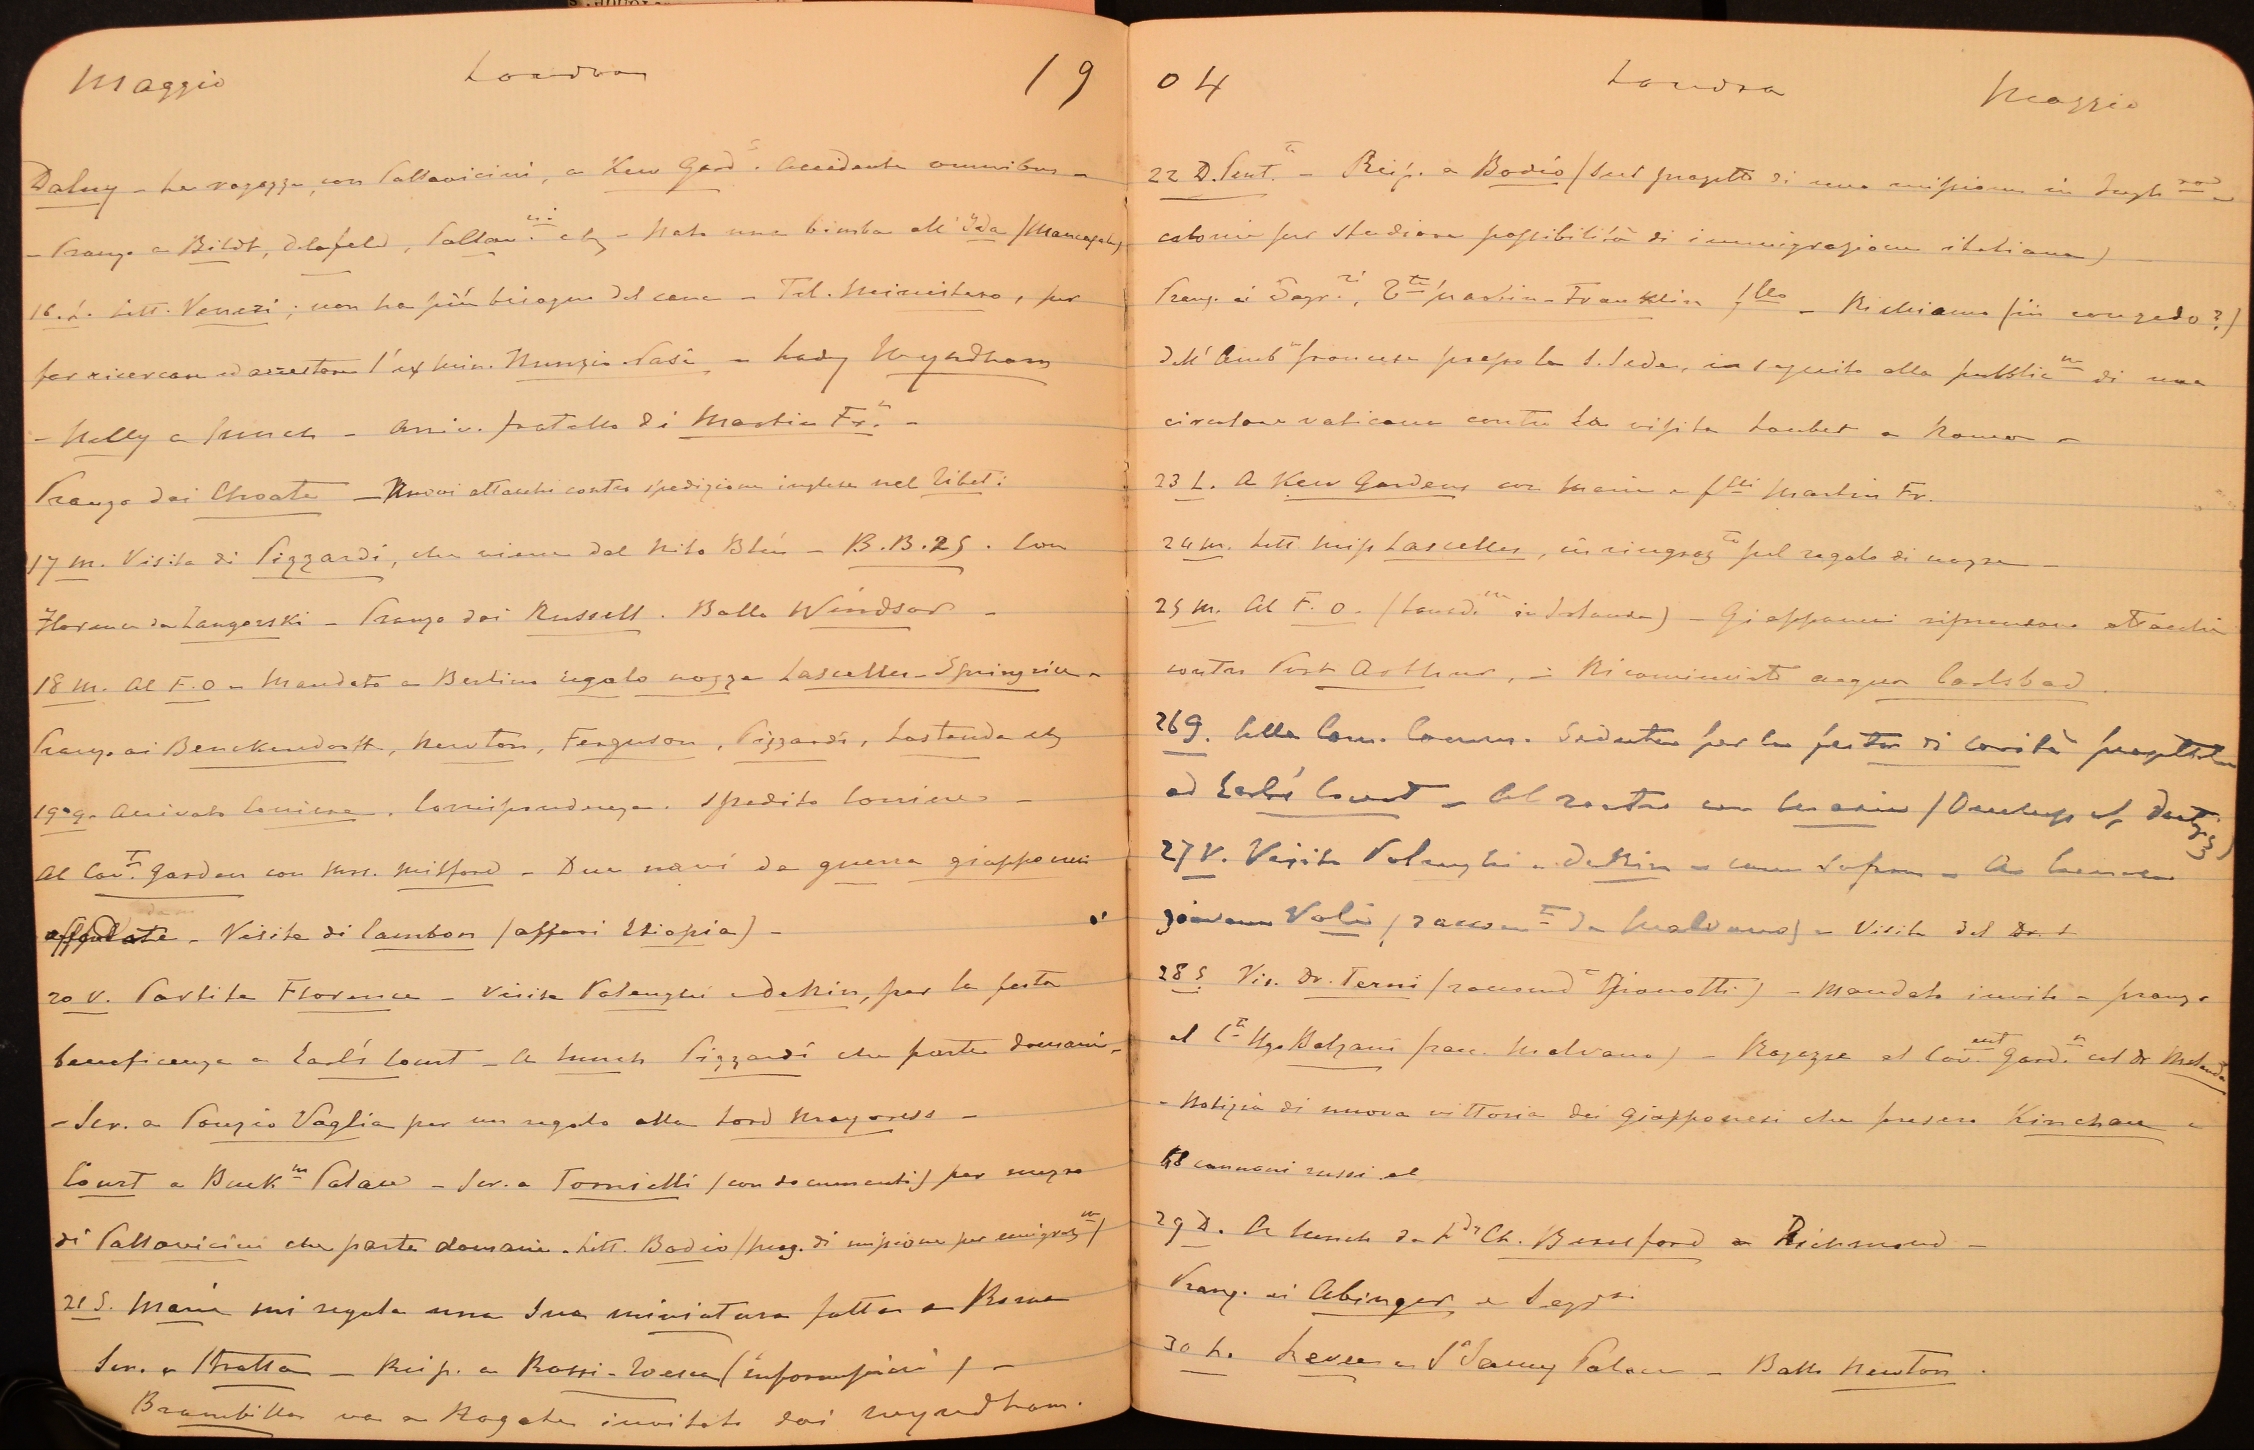 Maggio Londra 19
Dalny - Le ragazze, con Pallavicini, a Kew Gard.ns Accidente omnibus -
- Pranzo a Bildt, Delafeld, Pallav.ni etc - Nata una bimba all'Ida
16. L. Lett. Venezi; non ha più bisogno del cane - Tel. Ministero, per
far ricercare ed arrestare l'ex Min. Nunzio Nasi - Lady Wyndham
- Nelly a lunch - Arriv. fratello di Martin Fr.n -
Pranzo dai Choate - Nuovi attacchi contro spedizione inglese nel Tibet:
17 M. Visita di Pizzardi, che viene dal Nilo Bleu - B.B. 25. Con
Florence da Langorski - Pranzo dai Russell. Ballo Windsor -
18 M. Al F.O - Mandato a Berlino regalo nozze Lascelles-Springrice -
Pranzo ai Benckendorff, Newton, Ferguson, Pizzardi, etc
19 g. Arrivato Corriere. Corrispondenza. Spedito Corriere -
Al Cov.t Garden con Mrs. Mitford - Due navi da guerra giapponesi
affondate - Visita di Cambon (affari Etiopia) -
20 V. Partita Florence - Visita Polenghi e deRin, per la festa
beneficenza a Earl's Court - A lunch Pizzardi che parte domani -
- Scr. a Ponzio Vaglia per un regalo alla Lord Mayoress -
Court a Buck.m Palace - Scr. a Tornielli (con documenti) per mezzo
di Pallavicini che parte domani. Lett. Bodio (prog. di missione per emigraz.ne)
21 S. Maria mi regala una sua miniatura fatta a Roma
Scr. a - Risp. a Rossi- (informazioni) -
Brambilla va a Ragate invitato dai Wyndham.
04 Londra Maggio
22 D. Pent.te - Risp. a Bodio (sul progetto di una missione in Ingh.
colonie per studiare possibilità di immigrazione italiana) -
Pranz. ai Segr.ri, Martin-Franklin f.llo - Richiamo (in congedo?)
dell'Amb.re francese presso la S. Sede, in seguito alla pubblic.ne di una
circolare vaticana contro la visita Loubet a Roma -
23 L. A Kew Gardens con Maria e f.lli Martin Fr.
24 M. Lett Miss Lascelles, in ringraz.to pel regalo di nozze -
25 M. Al F.O. (Lansd.ne in Irlanda) - Giapponesi riprendono attacchi
contro Port Arthur, - Ricominciato acqua Carlsbad.
26 G. Alla Cam. Comm. Seduta per la festa di carità progettata
ad Earl's Court - Al teatro con Maria
27 V. Visita Polenghi e deRin - A lunch
giovane (raccom.to da Malvano) - Visita del Dr. S
28 S. Vis. Dr. Terni (raccomd.to Gianotti) - Mandato invito a pranzo
al C.te Ugo Balzani (racc. Malvano) - Ragazze al Cov.ent Gard.n col Dr
- Notizia di nuova vittoria dei giapponesi che presero Kinchau e
68 cannoni russi al
29 D. A lunch da L.d Ch. Beresford a Richmond -
Pranz. ai Abinger e Segr.ri
30 L. Levee a St James Palace - Ballo Newton.